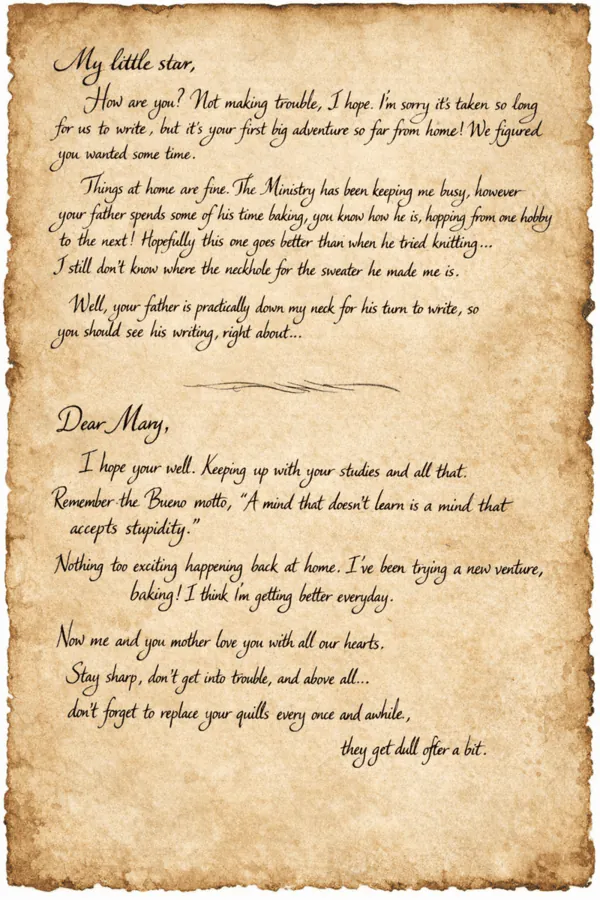 My little star,
How are you? Not making trouble, I hope. I'm sorry it's taken so long
for us to write, but it's your first big adventure so far from home! We figured
you wanted some time.
Things at home are fine. The Ministry has been keeping me busy, however
your father spends some of his time baking, you know how he is, hopping from one hobby
to the next! Hopefully this one goes better than when he tried knitting...
I still don't know where the neckhole for the sweater he made me is.
Well, your father is practically down my neck for his turn to write, so
you should see his writing, right about...
Dear Mary,
I hope your well. Keeping up with your studies and all that.
Remember the Bueno motto, "A mind that doesn't learn is a mind that
accepts stupidity."
Nothing too exciting happening back at home. I've been trying a new venture,
baking! I think I'm getting better everyday.
Now me and you mother love you with all our hearts.
Stay sharp, don't get into trouble, and above all...
don't forget to replace your quills every once and awhile.,
they get dull ofter a bit.